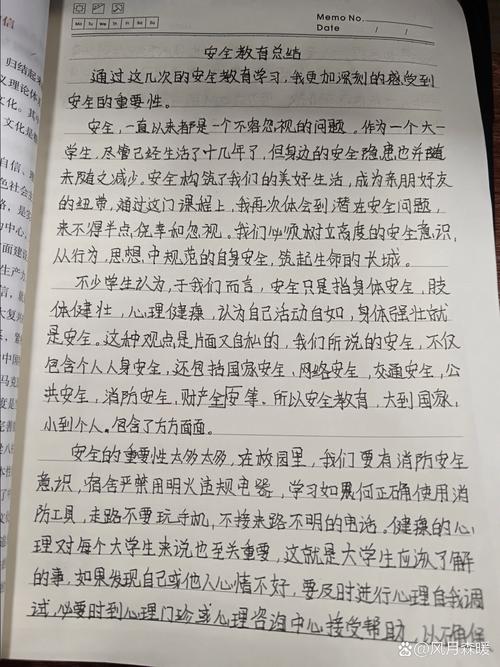 Mo Tu We Th Fr Sa Su
Memo No.
Date / /
信
安全教育总结
通过这几次的安全教育学习，我更加深刻的感受到
安全的重要性。
安全，一直以来都是一个不容忽视的问题。作为一个大一
学生，尽管已经生活了十几年了，但身边的安全隐患也并随
未随之减少。安全构筑了我们的美好生活，成为亲朋好友
的纽带，通过这门课程上，我再次体会到潜在安全问题，
来不得半点侥幸和忽视。我们必须树立高度的安全意识，
从行为，思想，中规范的自身安全，筑起生命的长城。
不少学生认为，于我们而言，安全只是指身体安全，肢
体健壮，心理健康，认为自己活动自如，身体强壮就
是安全。这种观点是片面又自私的，我们所说的安全，不仅
包含个人人身安全，还包括国家安全，网络安全，交通安全，公
共安全，消防安全，财产全安等。所以安全教育，大到国家，
小到个人。包含了方方面面。
安全的重要性太多太多，在校园里，我们要有消防安全
意识，宿舍严禁用明火违规电器，学习如果何正确使用消
防工具，走路不要玩手机，不接来路不明的电话。健康的心
理对每个大学生来说也至关重要，这就是大学生应该了解
的事，如果发现自己或他人心情不好，要及时进行心理自我调
试，必要时到心理门诊或心理咨询中心接受帮助，以确保
@风月森暖